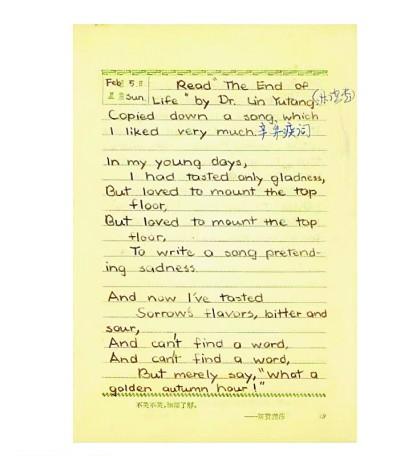 Feb 5
Sun.
Read "The End of
Life" by Dr. Lin Yutang.(林语堂)
Copied down a song, which
I liked very much. 辛弃疾词
In my young days,
I had tasted only gladness,
But loved to mount the top
floor,
But loved to mount the top
floor,
To write a song pretend-
ing sadness.
And now I've tasted
Sorrow's flavors, bitter and
sour,
And can't find a word,
And can't find a word,
But merely say, "What a
golden autumn hour!"